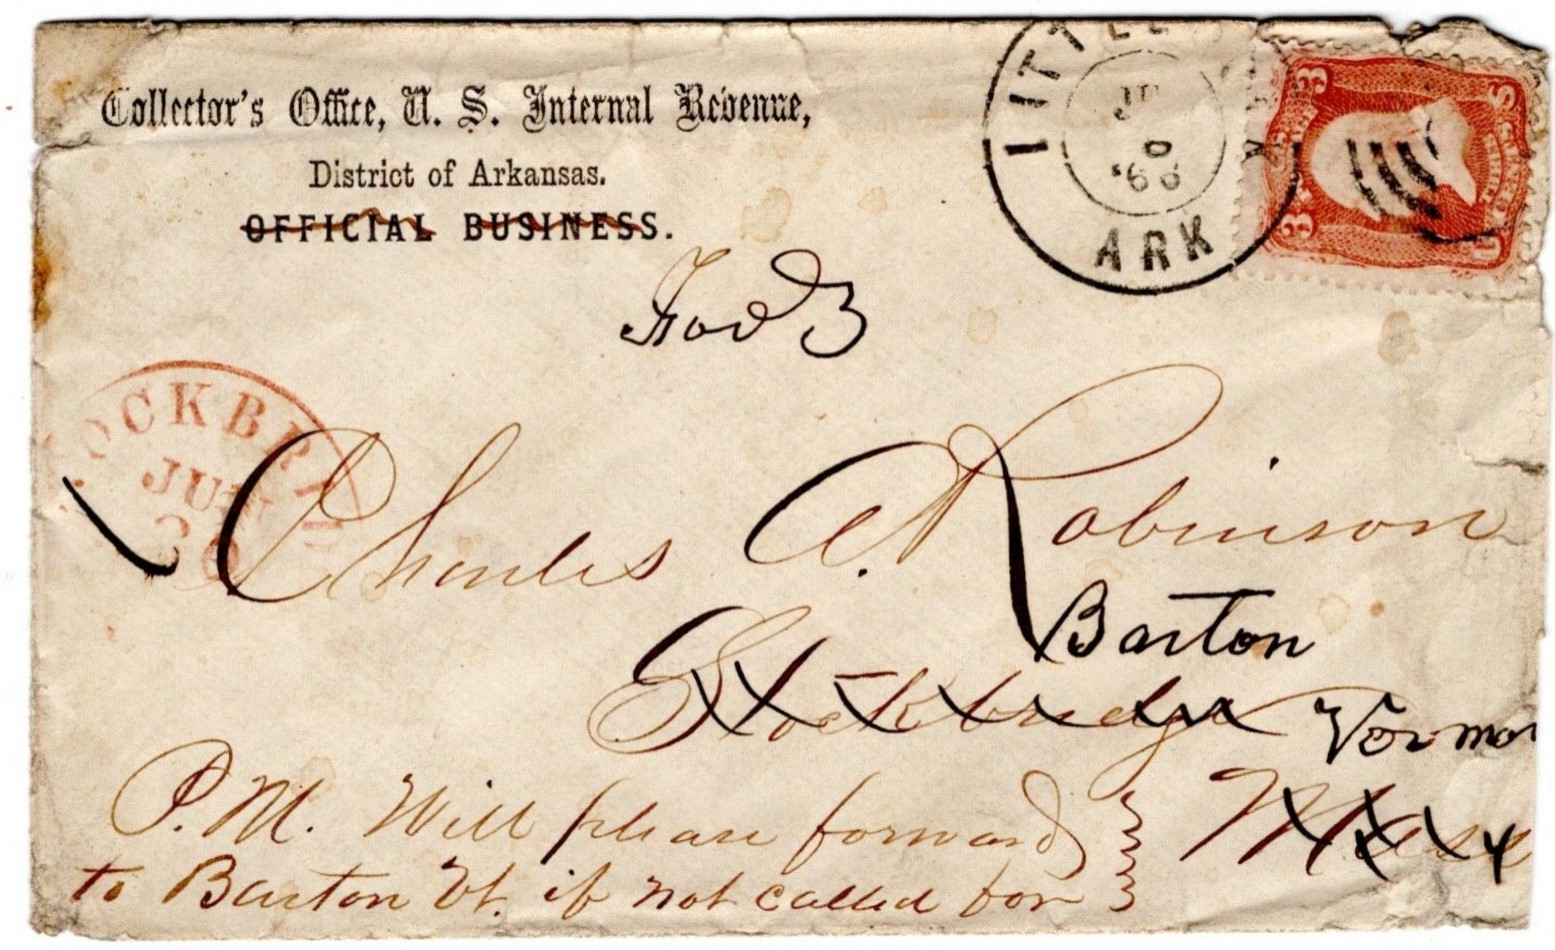 Collector's Office, U. S. Internal Revenue,
District of Arkansas.
OFFICIAL BUSINESS.
LITTLE
ARK
3
3
OCKBR
JUN
Charles A. Robinson
Barton
Stockbridge
Vermon
Mass
P.M. Will please forward
to Barton Vt. if not called for